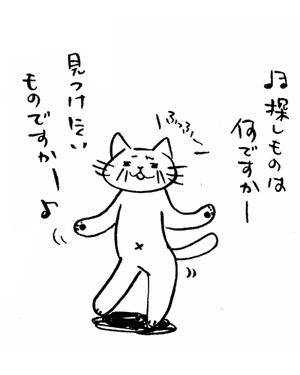 ♫探しものは
何ですかー
ふっふー
見つけにくい
ものですかー♪